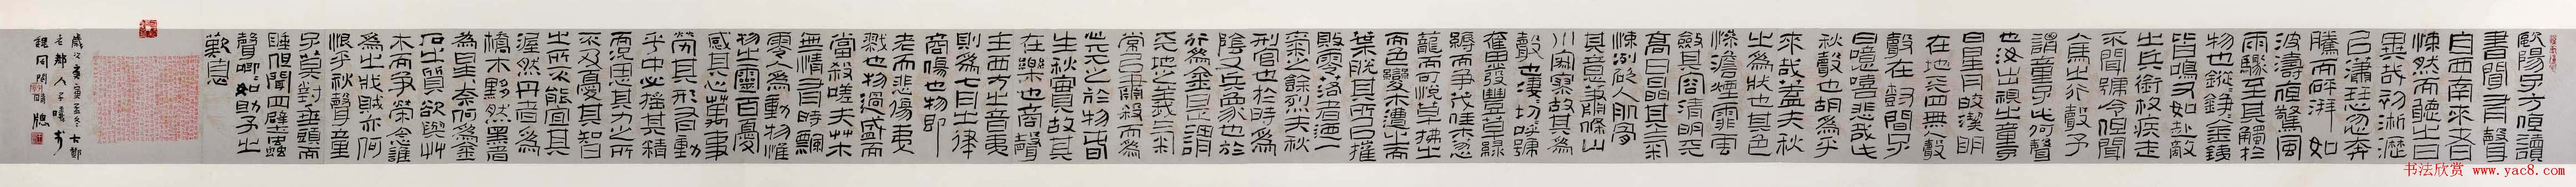 歐陽子方夜讀
書聞有聲自
西南來者
悚然而聽之曰
異哉初淅瀝
以瀟颯忽奔
騰而砰湃如
波濤夜驚風
雨驟至其觸於
物也鏦錚金鐵
皆鳴又如赴敵
之兵銜枚疾走
不聞號令但聞
人馬之行聲予
謂童子此何聲
也汝出視之童子
曰星月皎潔明
在四無聲
聲在樹間予
曰噫嘻悲哉此
秋聲也胡為乎
來哉蓋夫秋
之為狀也其色
慘澹煙霏雲
斂其容清明天
高日晶其氣
慄冽砭人肌骨
其意蕭條山
川寂寥故其為
聲也淒切呼號
奮發豐草綠
縟而爭茂佳木蔥
蘢而可悅草拂之
而色變木遭之而
葉脫其所以摧
敗零落者迺一
氣之餘烈夫秋
刑官也於時為
陰又兵象也於
行為金是謂
天地之義氣
常以肅殺而為
心天之於物春
生秋實故其
在樂也商聲
主西方之音夷
則為七月之律
商傷也物既
老而悲傷夷
戮也物過盛而
當殺嗟夫草木
無情有時飄
零人為動物惟
物之靈百憂
感其心萬事
勞其形有動
乎中必搖其精
而況思其力之所
不及憂其智
之所不能宜其
渥然丹者為
槁木黟然黑者
為星星奈何為金
石之質欲與草
木而爭榮念誰
為之戕賊亦何
恨乎秋聲童
子莫對垂頭而
睡但聞四壁蟲
聲唧唧如助予之
歎息
书法欣赏 www.yac8.com